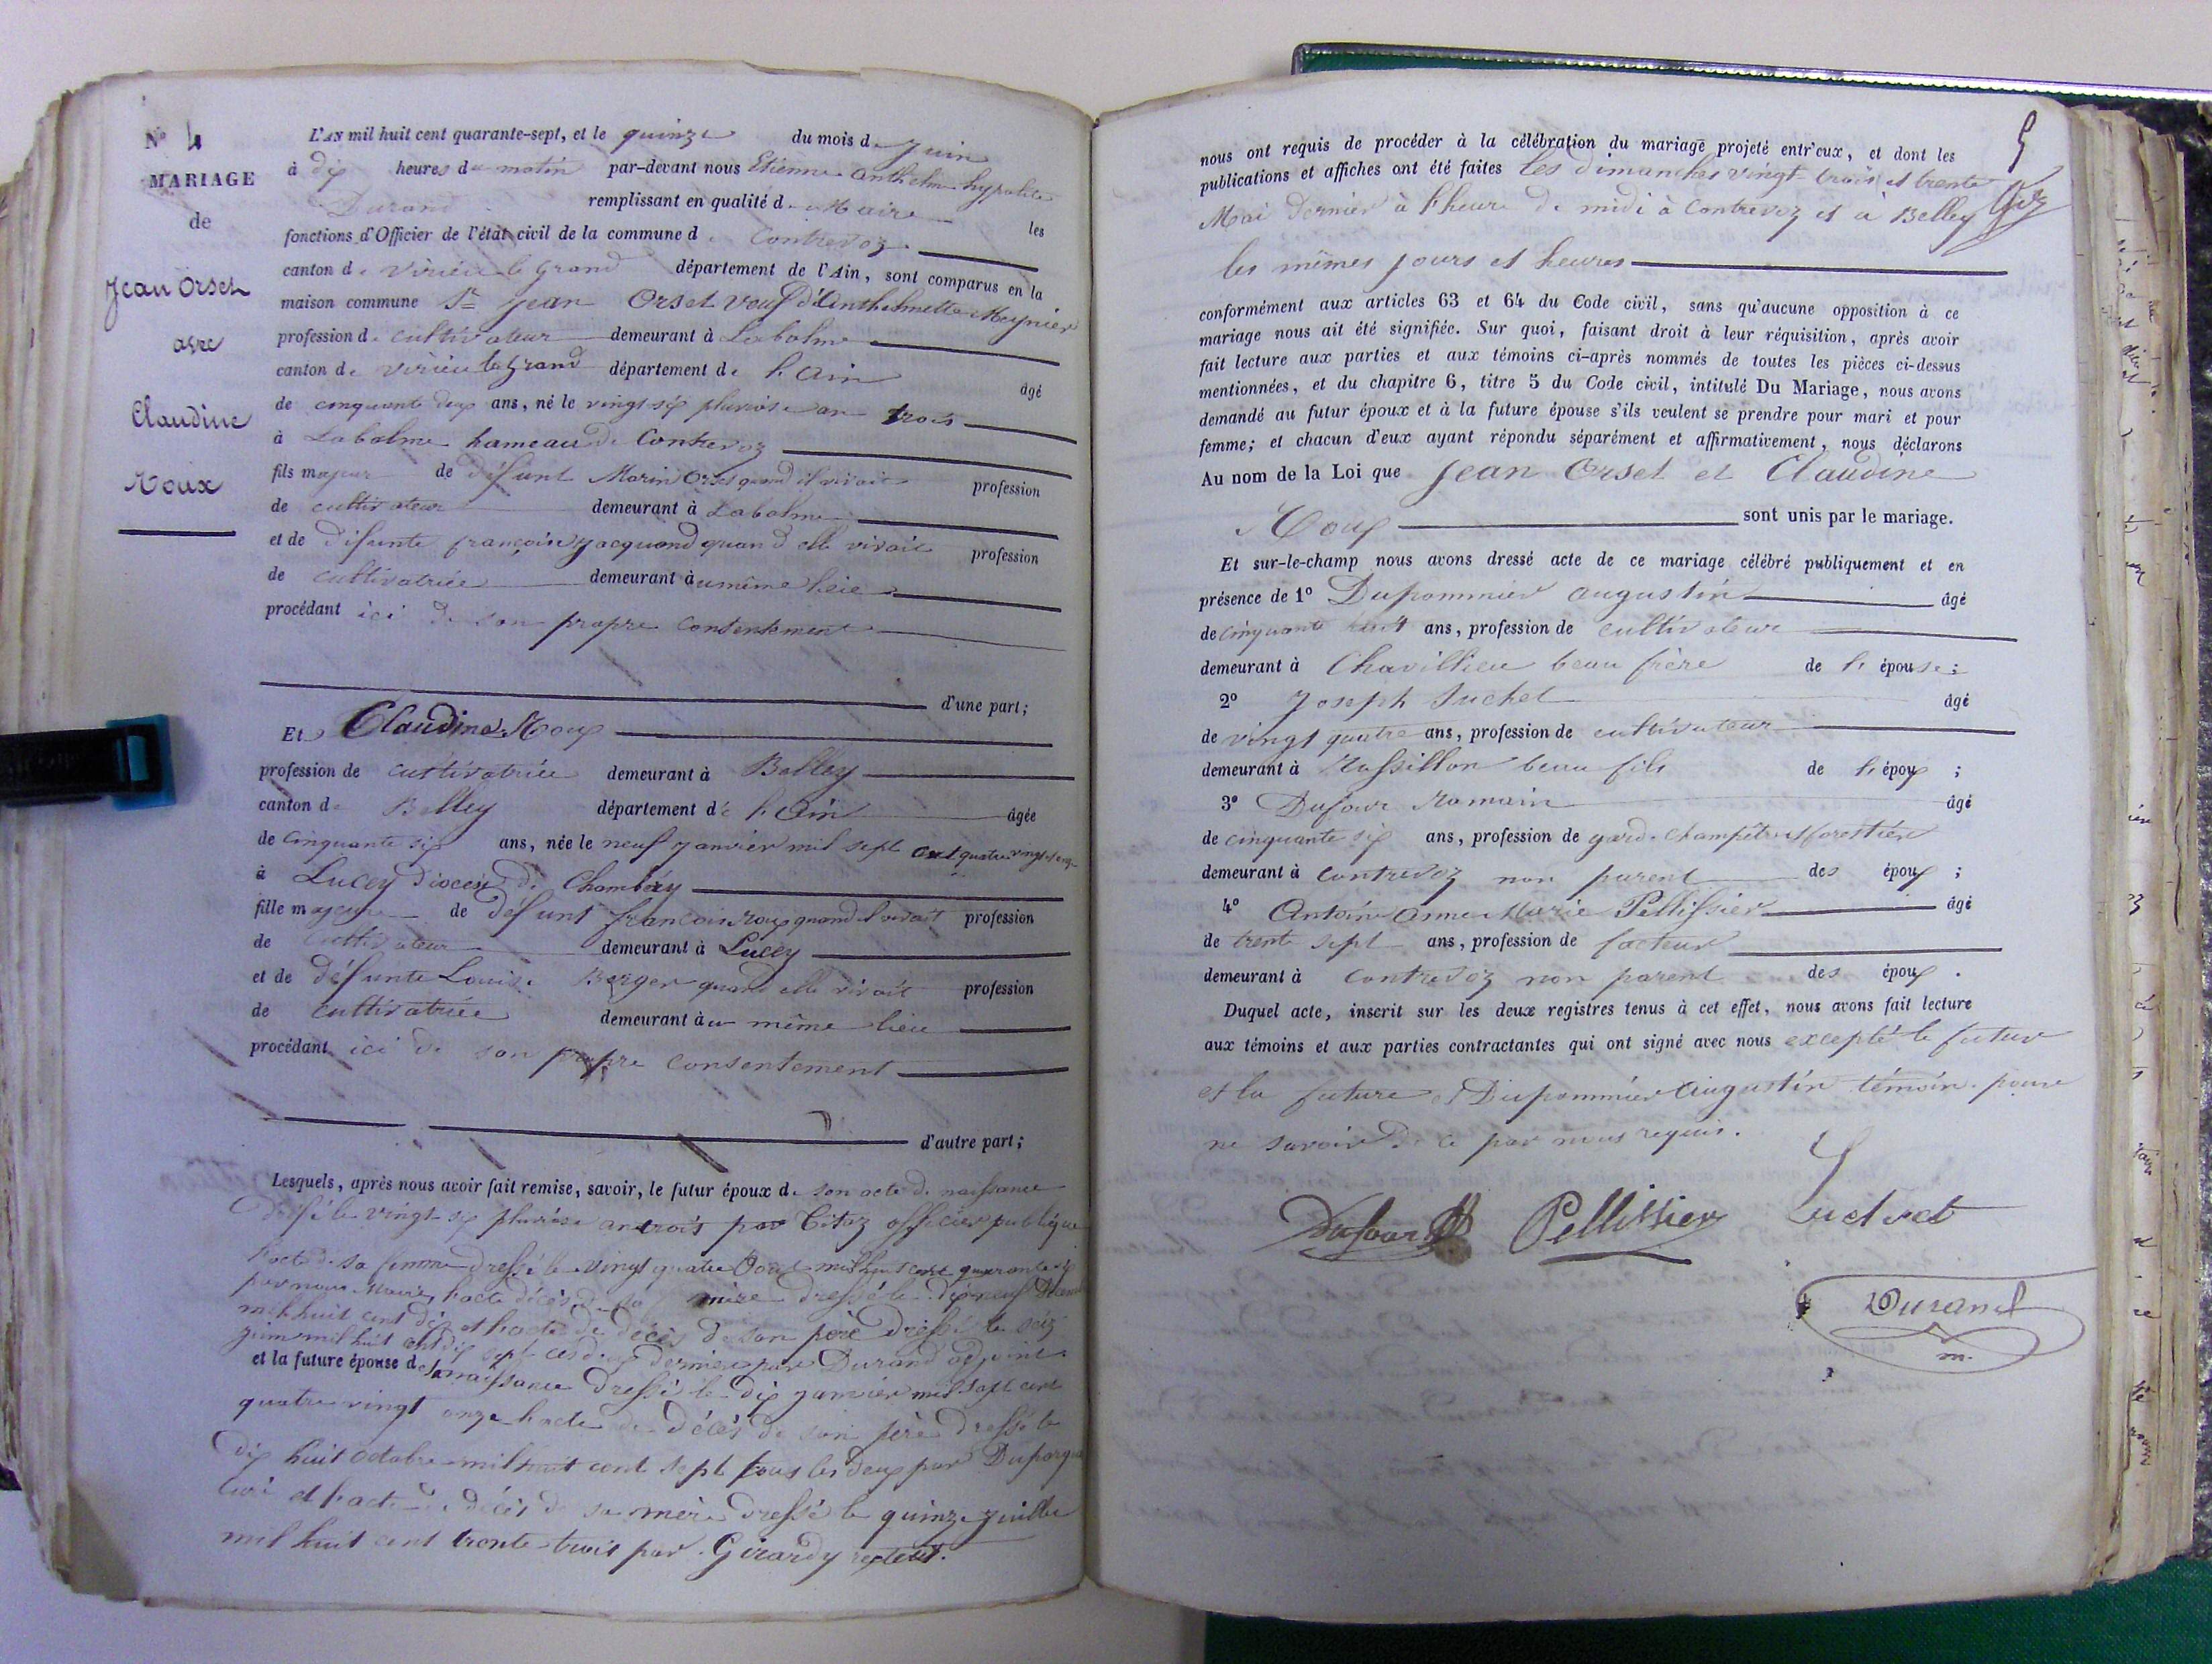 N° 4
MARIAGE
de
Jean Orset
avec
Claudine
Roux
L'AN mil huit cent quarante-sept, et le quinze du mois de Juin
à dix heures du matin par-devant nous Etienne Anthelme hypolite
Durand remplissant en qualité de Maire les
fonctions d'Officier de l'état civil de la commune de Contrevoz
canton de virieu le grand département de l'Ain, sont comparus en la
maison commune Sr Jean Orset veuf d'Anthelmette Meynier
profession de cultivateur demeurant à Labalme
canton de virieu le grand département de l'ain âgé
de cinquante deux ans, né le vingt six pluviose an trois
à Labalme hameau de Contrevoz
fils majeur de défunt Marin Orset quand il vivait profession
de cultivateur demeurant à Labalme
et de défunte françoise jacquond quand elle vivait profession
de cultivatrice demeurant au même lieu
procédant ici de son propre consentement
d'une part;
Et Claudine Roux
profession de cultivatrice demeurant à Belley
canton de Belley département de l'Ain âgée
de cinquante six ans, née le neuf janvier mil sept cent quatre vingt onze
à Lucey diocèse de Chambéry
fille majeure de défunt françois roux quand il vivait profession
de cultivateur demeurant à Lucey
et de défunte Louise Berger quand elle vivait profession
de cultivatrice demeurant au même lieu
procédant ici de son propre consentement
d'autre part;
Lesquels, après nous avoir fait remise, savoir, le futur époux de son acte de naissance
dressé le vingt six pluviose an trois par Citoz officier publique
l'acte de sa femme dressé le vingt quatre Aout mil huit cent quarante six
par nous Maire, l'acte décès de sa mère dressé le dix neuf
mil huit cent dix et l'acte de décès de son père dressé le seize
juin mil huit cent dix sept ces deux derniers par Durand adjoint
et la future épouse de sa naissance dressé le dix janvier mil sept cent
quatre vingt onze l'acte de décès de son père dressé le
dix huit octobre mil huit cent sept tous les deux par
curé et l'acte de décès de sa mère dressé le quinze juillet
mil huit cent trente trois par Girardy recteur.
5
nous ont requis de procéder à la célébration du mariage projeté entr'eux, et dont les
publications et affiches ont été faites les dimanches vingt trois et trente
Mai dernier à l'heure de midi à Contrevoz et à Belley
les mêmes jours et heures
conformément aux articles 63 et 64 du Code civil, sans qu'aucune opposition à ce
mariage nous ait été signifiée. Sur quoi, faisant droit à leur réquisition, après avoir
fait lecture aux parties et aux témoins ci-après nommés de toutes les pièces ci-dessus
mentionnées, et du chapitre 6, titre 5 du Code civil, intitulé Du Mariage, nous avons
demandé au futur époux et à la future épouse s'ils veulent se prendre pour mari et pour
femme; et chacun d'eux ayant répondu séparément et affirmativement, nous déclarons
Au nom de la Loi que Jean Orset et Claudine
Roux sont unis par le mariage.
Et sur-le-champ nous avons dressé acte de ce mariage célébré publiquement et en
présence de 1° Dupommier augustin âgé
de cinquante huit ans, profession de cultivateur
demeurant à Chavillieu beau frère de l'épouse;
2° Joseph Suchet âgé
de vingt quatre ans, profession de cultivateur
demeurant à Rossillon beau fils de l'époux;
3° Dufour Romain âgé
de cinquante six ans, profession de garde champêtre et forestier
demeurant à Contrevoz non parent des époux;
4° Antoine anne Marie Pellissier âgé
de trente sept ans, profession de facteur
demeurant à Contrevoz non parent des époux.
Duquel acte, inscrit sur les deux registres tenus à cet effet, nous avons fait lecture
aux témoins et aux parties contractantes qui ont signé avec nous excepté le futur
et la future et Dupommier Augustin témoin pour
ne savoir de ce par nous requis.
Dufour Pellissier Suchet
Durand
m.